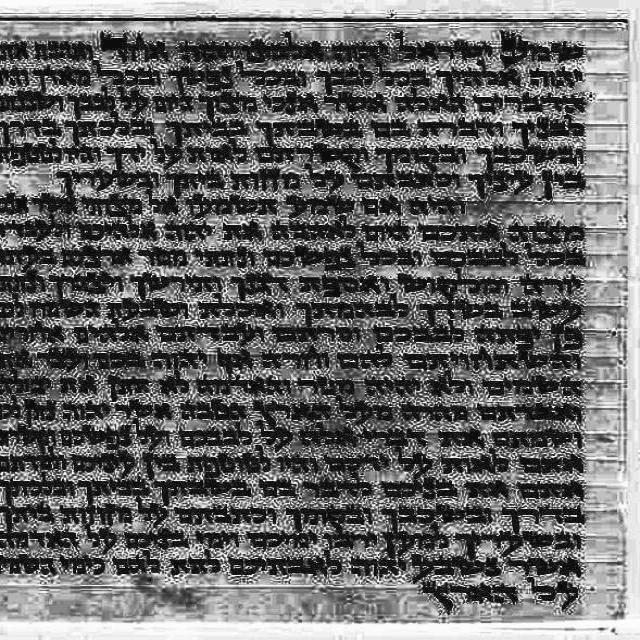 שמע ישראל יהוה אלהינו יהוה אחד ואהבת את
יהוה אלהיך בכל לבבך ובכל נפשך ובכל מאדך והיו
הדברים האלה אשר אנכי מצוך היום על לבבך ושננתם
לבניך ודברת בם בשבתך בביתך ובלכתך בדרך
ובשכבך ובקומך וקשרתם לאות על ידך והיו לטטפת
בין עיניך וכתבתם על מזזות ביתך ובשעריך
והיה אם שמע תשמעו אל מצותי אשר
מצוה אתכם היום לאהבה את יהוה אלהיכם ולעבדו
בכל לבבכם ובכל נפשכם ונתתי מטר ארצכם בעתו
יורה ומלקוש ואספת דגנך ותירשך ויצהרך ונתתי
עשב בשדך לבהמתך ואכלת ושבעת השמרו לכם
פן יפתה לבבכם וסרתם ועבדתם אלהים אחרים
והשתחויתם להם וחרה אף יהוה בכם ועצר את
השמים ולא יהיה מטר והאדמה לא תתן את יבולה
ואבדתם מהרה מעל הארץ הטבה אשר יהוה נתן לכם
ושמתם את דברי אלה על לבבכם ועל נפשכם וקשרתם
אתם לאות על ידכם והיו לטוטפת בין עיניכם ולמדתם
אתם את בניכם לדבר בם בשבתך בביתך ובלכתך
בדרך ובשכבך ובקומך וכתבתם על מזוזות ביתך
ובשעריך למען ירבו ימיכם וימי בניכם על האדמה
אשר נשבע יהוה לאבתיכם לתת להם כימי השמים
על הארץ